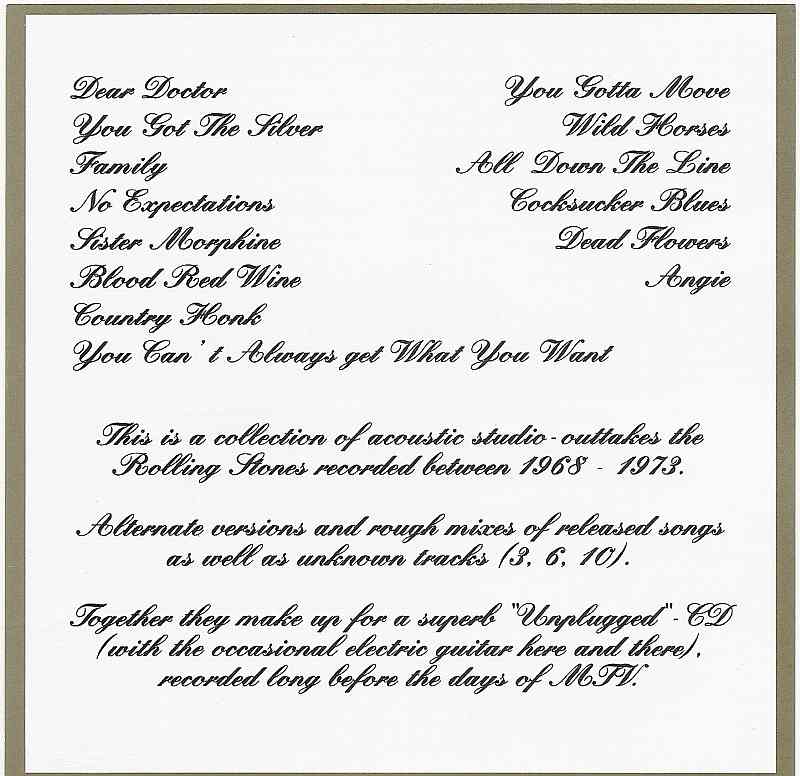 Dear Doctor
You Got The Silver
Family
No Expectations
Sister Morphine
Blood Red Wine
Country Honk
You Can't Always get What You Want
You Gotta Move
Wild Horses
All Down The Line
Cocksucker Blues
Dead Flowers
Angie
This is a collection of acoustic studio-outtakes the
Rolling Stones recorded between 1968 - 1973.
Alternate versions and rough mixes of released songs
as well as unknown tracks (3, 6, 10).
Together they make up for a superb "Unplugged"-CD
(with the occasional electric guitar here and there),
recorded long before the days of MTV.